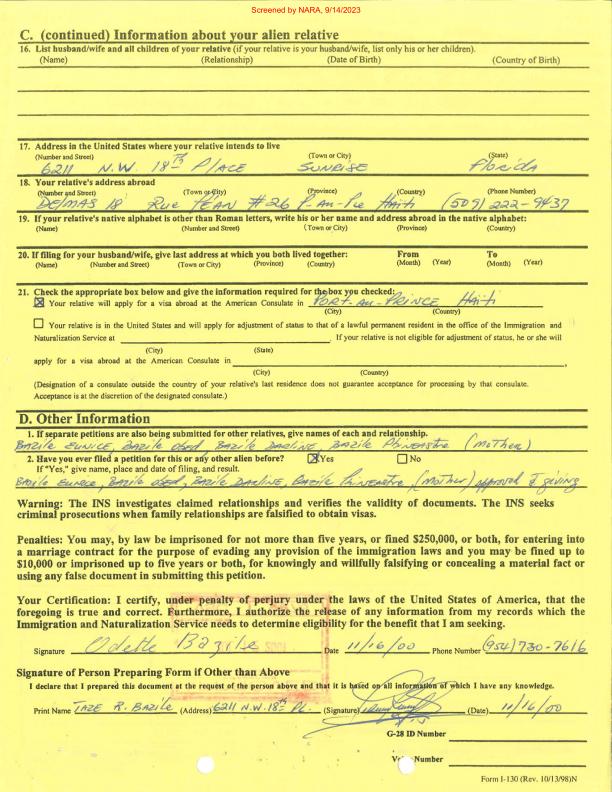 Screened by NARA, 9/14/2023
C. (continued) Information about your alien relative
16. List husband/wife and all children of your relative (if your relative is your husband/wife, list only his or her children).
(Name) (Relationship) (Date of Birth) (Country of Birth)
17. Address in the United States where your relative intends to live
(Number and Street) (Town or City) (State)
6211 N.W. 18th PLACE SUNRISE Florida
18. Your relative's address abroad
(Number and Street) (Town or City) (Province) (Country) (Phone Number)
DElMAS 18 Rue JEAN #26 P-au-Pce Haiti (509) 222-9437
19. If your relative's native alphabet is other than Roman letters, write his or her name and address abroad in the native alphabet:
(Name) (Number and Street) (Town or City) (Province) (Country)
20. If filing for your husband/wife, give last address at which you both lived together: From To
(Name) (Number and Street) (Town or City) (Province) (Country) (Month) (Year) (Month) (Year)
21. Check the appropriate box below and give the information required for the box you checked:
☒ Your relative will apply for a visa abroad at the American Consulate in PORT-au-PRINCE Haiti
(City) (Country)
☐ Your relative is in the United States and will apply for adjustment of status to that of a lawful permanent resident in the office of the Immigration and
Naturalization Service at . If your relative is not eligible for adjustment of status, he or she will
(City) (State)
apply for a visa abroad at the American Consulate in
(City) (Country)
(Designation of a consulate outside the country of your relative's last residence does not guarantee acceptance for processing by that consulate.
Acceptance is at the discretion of the designated consulate.)
D. Other Information
1. If separate petitions are also being submitted for other relatives, give names of each and relationship.
BAZILE EUNICE, BAZILE Obed, BAZILE DARLINE, BAZILE (Mother)
2. Have you ever filed a petition for this or any other alien before? ☒ Yes ☐ No
If "Yes," give name, place and date of filing, and result.
BAZILE EUNICE, BAZILE obed, BAZILE DARLINE, BAZILE (Mother) approved & giving
Warning: The INS investigates claimed relationships and verifies the validity of documents. The INS seeks
criminal prosecutions when family relationships are falsified to obtain visas.
Penalties: You may, by law be imprisoned for not more than five years, or fined $250,000, or both, for entering into
a marriage contract for the purpose of evading any provision of the immigration laws and you may be fined up to
$10,000 or imprisoned up to five years or both, for knowingly and willfully falsifying or concealing a material fact or
using any false document in submitting this petition.
Your Certification: I certify, under penalty of perjury under the laws of the United States of America, that the
foregoing is true and correct. Furthermore, I authorize the release of any information from my records which the
Immigration and Naturalization Service needs to determine eligibility for the benefit that I am seeking.
Signature Odette Bazile Date 11/16/00 Phone Number (954) 730-7616
Signature of Person Preparing Form if Other than Above
I declare that I prepared this document at the request of the person above and that it is based on all information of which I have any knowledge.
Print Name TAZE R. BAZILE (Address) 6211 N.W. 18th PL. (Signature) (Date) 11/16/00
G-28 ID Number
Number
Form I-130 (Rev. 10/13/98)N